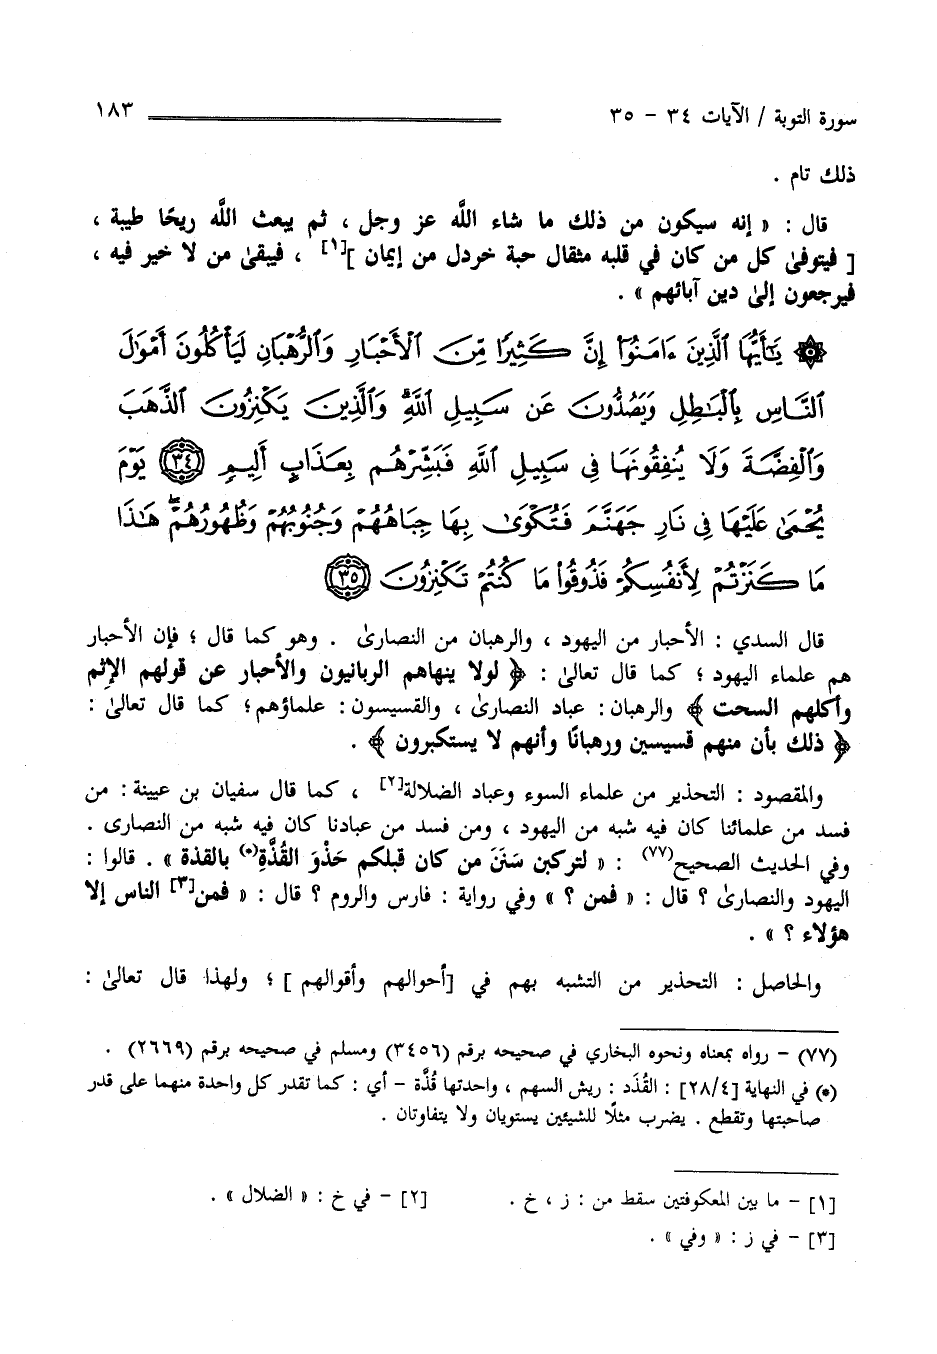 سورة التوبة / الآيات ٣٤ - ٣٥ ١٨٣
ذلك تام .
قال : « إنه سيكون من ذلك ما شاء اللَّه عز وجل ، ثم يبعث اللَّه ريحًا طيبة ،
[ فيتوفىٰ كل من كان في قلبه مثقال حبة خردل من إيمان ][١] ، فيبقىٰ من لا خير فيه ،
فيرجعون إلىٰ دين آبائهم » .
۞ يَٰٓأَيُّهَا ٱلَّذِينَ ءَامَنُوٓا۟ إِنَّ كَثِيرًا مِّنَ ٱلْأَحْبَارِ وَٱلرُّهْبَانِ لَيَأْكُلُونَ أَمْوَٰلَ
ٱلنَّاسِ بِٱلْبَٰطِلِ وَيَصُدُّونَ عَن سَبِيلِ ٱللَّهِ ۗ وَٱلَّذِينَ يَكْنِزُونَ ٱلذَّهَبَ
وَٱلْفِضَّةَ وَلَا يُنفِقُونَهَا فِى سَبِيلِ ٱللَّهِ فَبَشِّرْهُم بِعَذَابٍ أَلِيمٍ ﴿٣٤﴾ يَوْمَ
يُحْمَىٰ عَلَيْهَا فِى نَارِ جَهَنَّمَ فَتُكْوَىٰ بِهَا جِبَاهُهُمْ وَجُنُوبُهُمْ وَظُهُورُهُمْ ۖ هَٰذَا
مَا كَنَزْتُمْ لِأَنفُسِكُمْ فَذُوقُوا۟ مَا كُنتُمْ تَكْنِزُونَ ﴿٣٥﴾
قال السدي : الأحبار من اليهود ، والرهبان من النصارىٰ . وهو كما قال ؛ فإن الأحبار
هم علماء اليهود ؛ كما قال تعالىٰ : ﴿ لولا ينهاهم الربانيون والأحبار عن قولهم الإثم
وأكلهم السحت ﴾ والرهبان : عباد النصارىٰ ، والقسيسون : علماؤهم ؛ كما قال تعالىٰ :
﴿ ذلك بأن منهم قسيسين ورهبانًا وأنهم لا يستكبرون ﴾ .
والمقصود : التحذير من علماء السوء وعباد الضلالة[٢] ، كما قال سفيان بن عيينة : من
فسد من علمائنا كان فيه شبه من اليهود ، ومن فسد من عبادنا كان فيه شبه من النصارى .
وفي الحديث الصحيح(٧٧) : « لتركبن سَنَنَ من كان قبلكم حَذْوَ القُذَّةِ(*) بالقذة » . قالوا :
اليهود والنصارىٰ ؟ قال : « فمن ؟ » وفي رواية : فارس والروم ؟ قال : « فمن[٣] الناس إلا
هؤلاء ؟ » .
والحاصل : التحذير من التشبه بهم في [أحوالهم وأقوالهم ] ؛ ولهذا قال تعالىٰ :
(٧٧) - رواه بمعناه ونحوه البخاري في صحيحه برقم (٣٤٥٦) ومسلم في صحيحه برقم (٢٦٦٩) .
(*) في النهاية [٢٨/٤] : القُذَد : ريش السهم ، واحدتها قُذَّة - أي : كما تقدر كل واحدة منهما على قدر
صاحبتها وتقطع . يضرب مثلًا للشيئين يستويان ولا يتفاوتان .
[١] - ما بين المعكوفتين سقط من : ز ، خ . [٢] - في خ : « الضلال » .
[٣] - في ز : « وفي » .